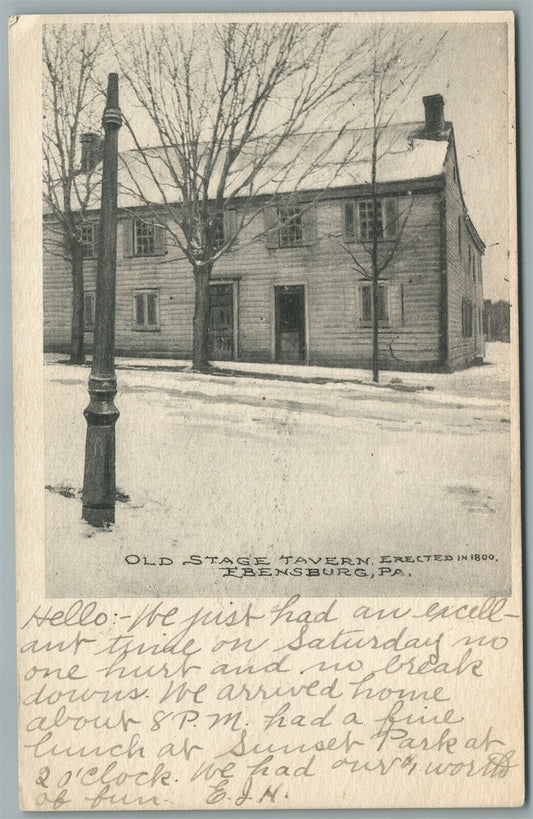 OLD STAGE TAVERN, ERECTED IN 1800,
EBENSBURG, PA.
Hello:- We just had an excell-
ant time on Saturday no
one hurt and no break
downs. We arrived home
about 8 P.M. had a fine
lunch at Sunset Park at
2 o'clock. We had our $1 worth
of fun. E.J.H.